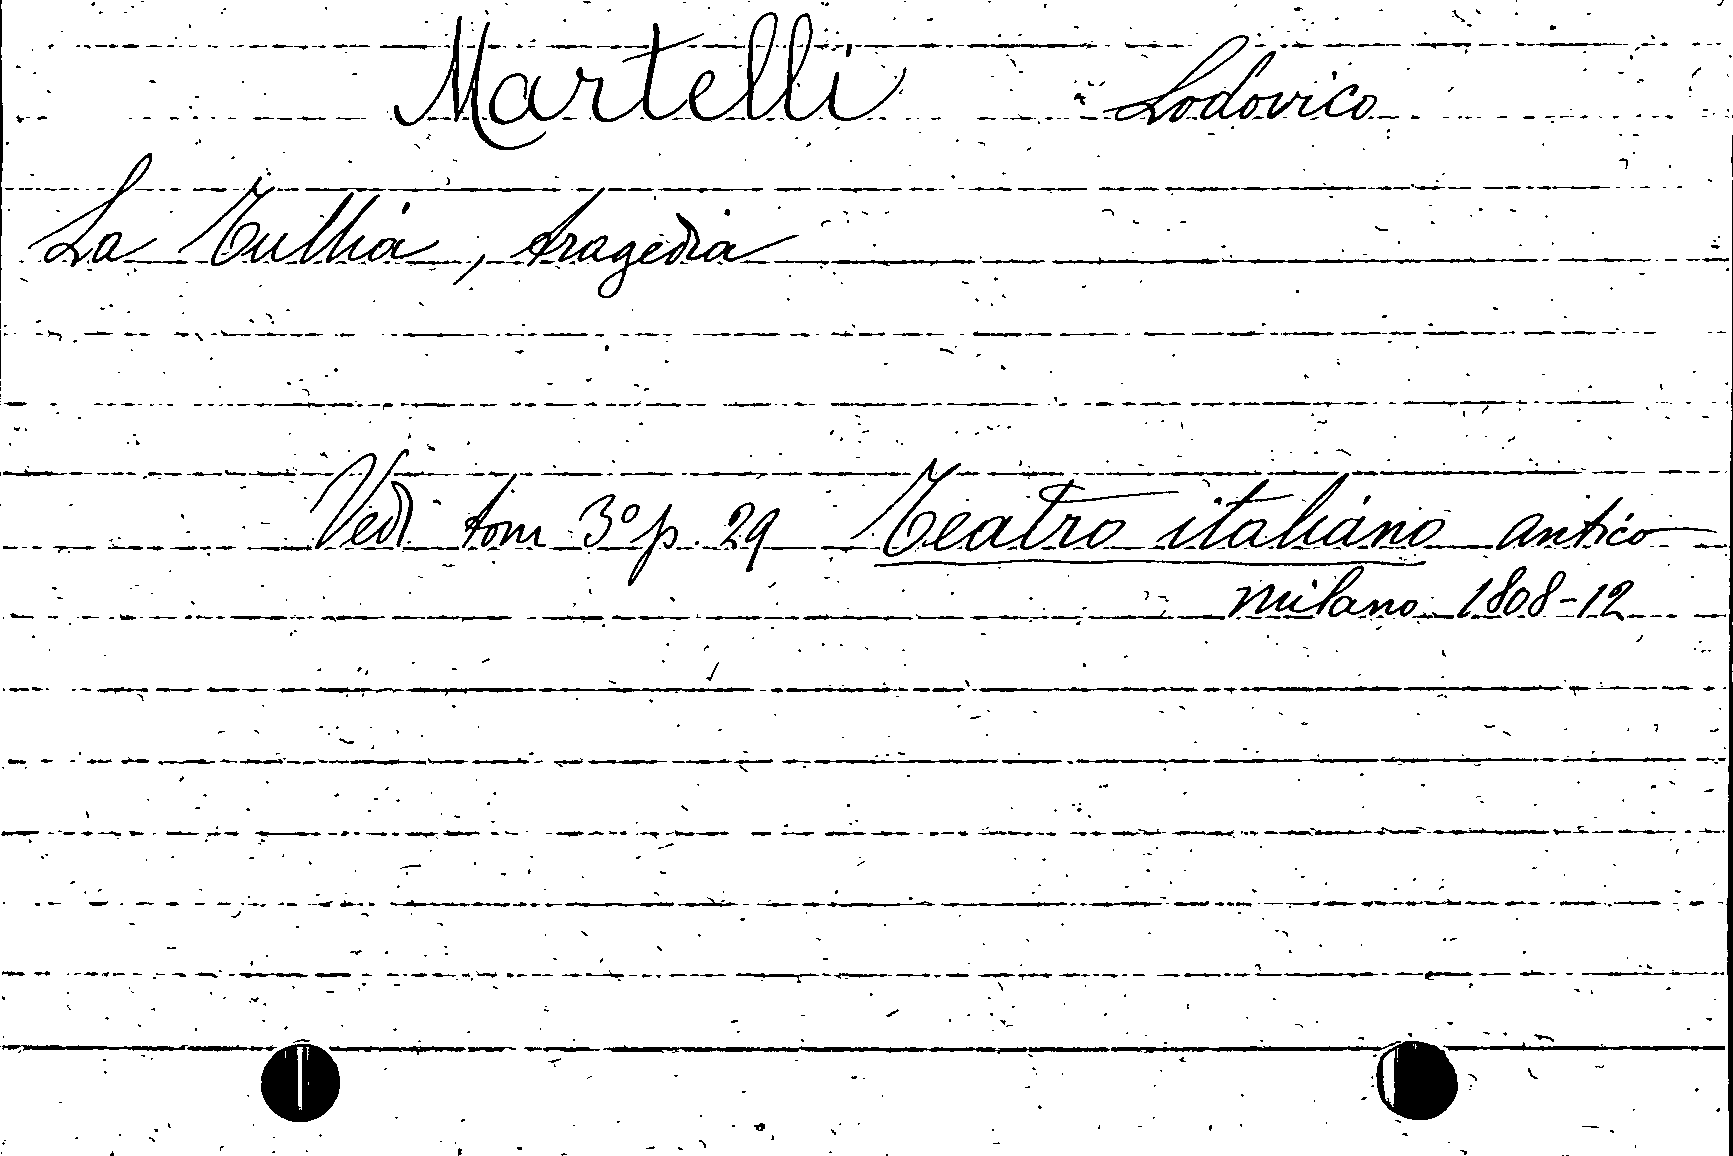 Martelli Lodovico
La Tullia, tragedia
Vedi tom 3º p. 29 Teatro italiano antico
Milano 1808-12